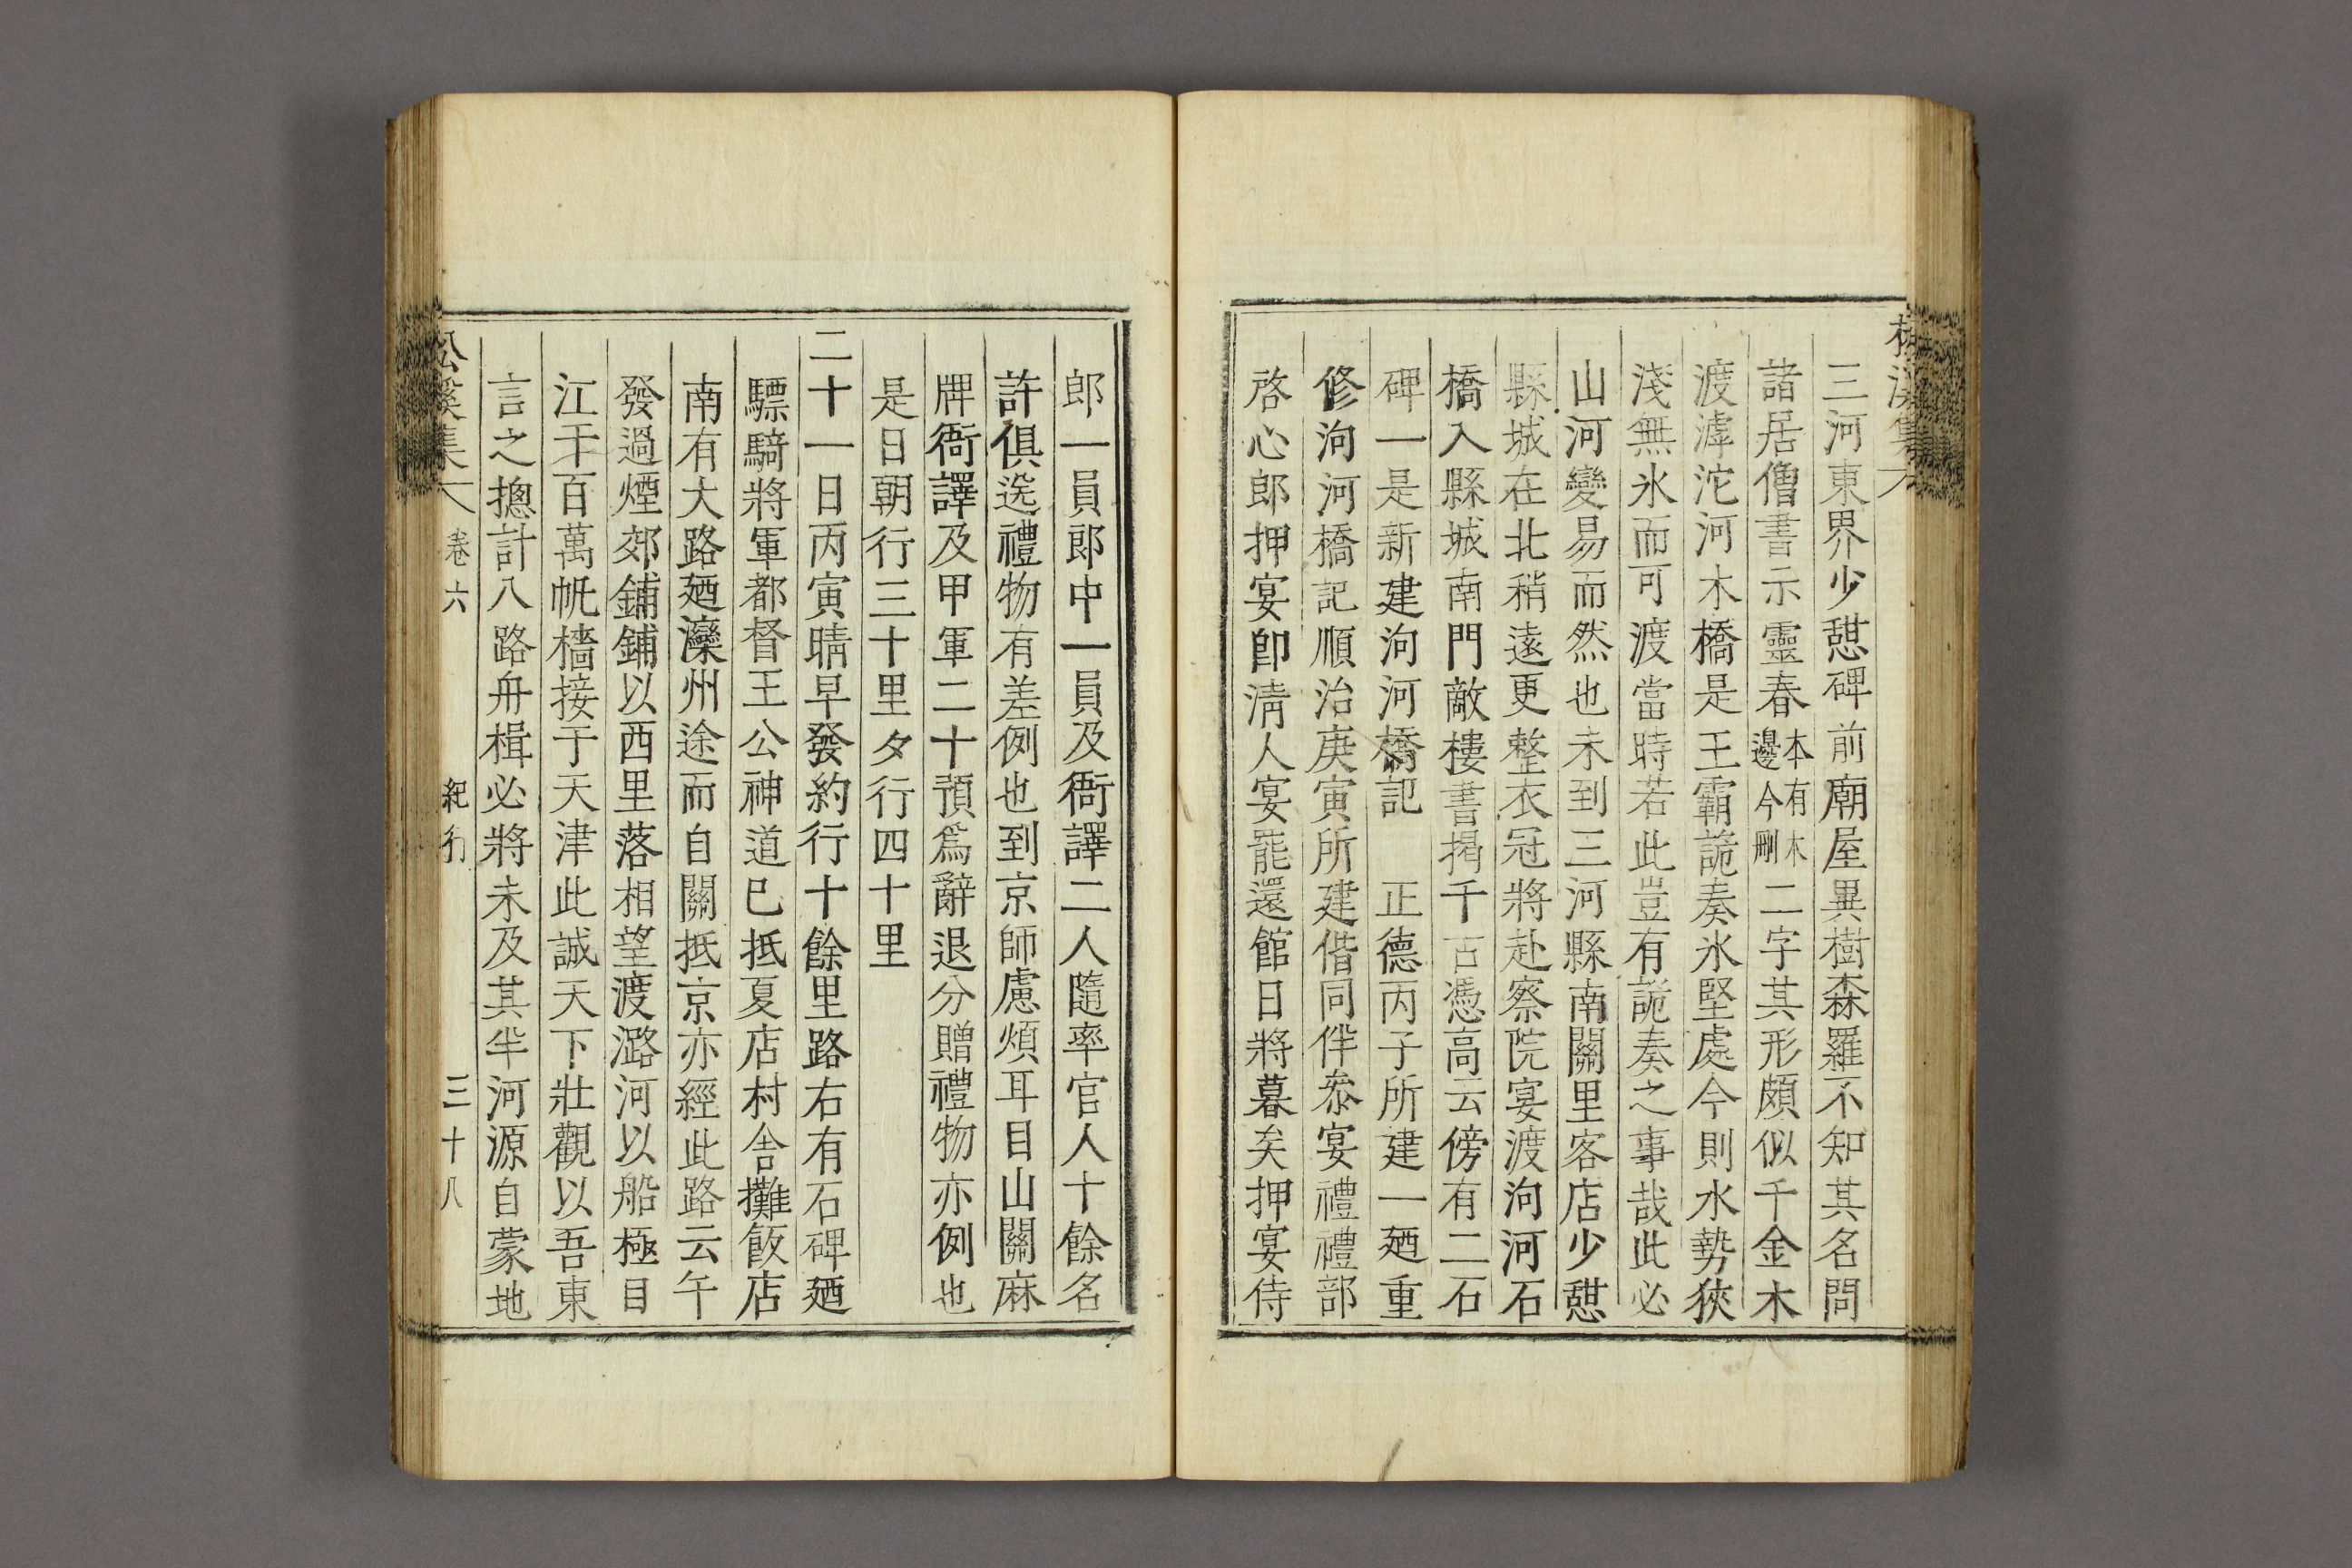 三河東界少憇碑前廟屋異樹森羅不知其名問
諸居僧書示靈春本有木邊今剛二字其形頗似千金木
渡滹沱河木橋是王霸詭奏氷堅處今則水勢狹
淺無氷而可渡當時若此豈有詭奏之事哉此必
山河變易而然也未到三河縣南關里客店少憇
縣城在北稍遠更整衣冠將赴察院宴渡泃河石
橋入縣城南門敵樓書揭千古憑高云傍有二石
碑一是新建泃河橋記 正德丙子所建一廼重
修泃河橋記順治庚寅所建偕同伴叅宴禮禮部
啓心郎押宴卽淸人宴罷還館日將暮矣押宴侍
郎一員郎中一員及衙譯二人隨率官人十餘名
許俱送禮物有差例也到京師慮煩耳目山關麻
牌衙譯及甲軍二十預爲辭退分贈禮物亦例也
是日朝行三十里夕行四十里
二十一日丙寅晴早發約行十餘里路右有石碑廼
驃騎將軍都督王公神道已抵夏店村舍攤飯店
南有大路廼灤州途而自關抵京亦經此路云午
發過煙郊鋪鋪以西里落相望渡潞河以船極目
江干百萬帆檣接于天津此誠天下壯觀以吾東
言之摠計八路舟楫必將未及其半河源自蒙地
松溪集 卷六 紀行 三十八